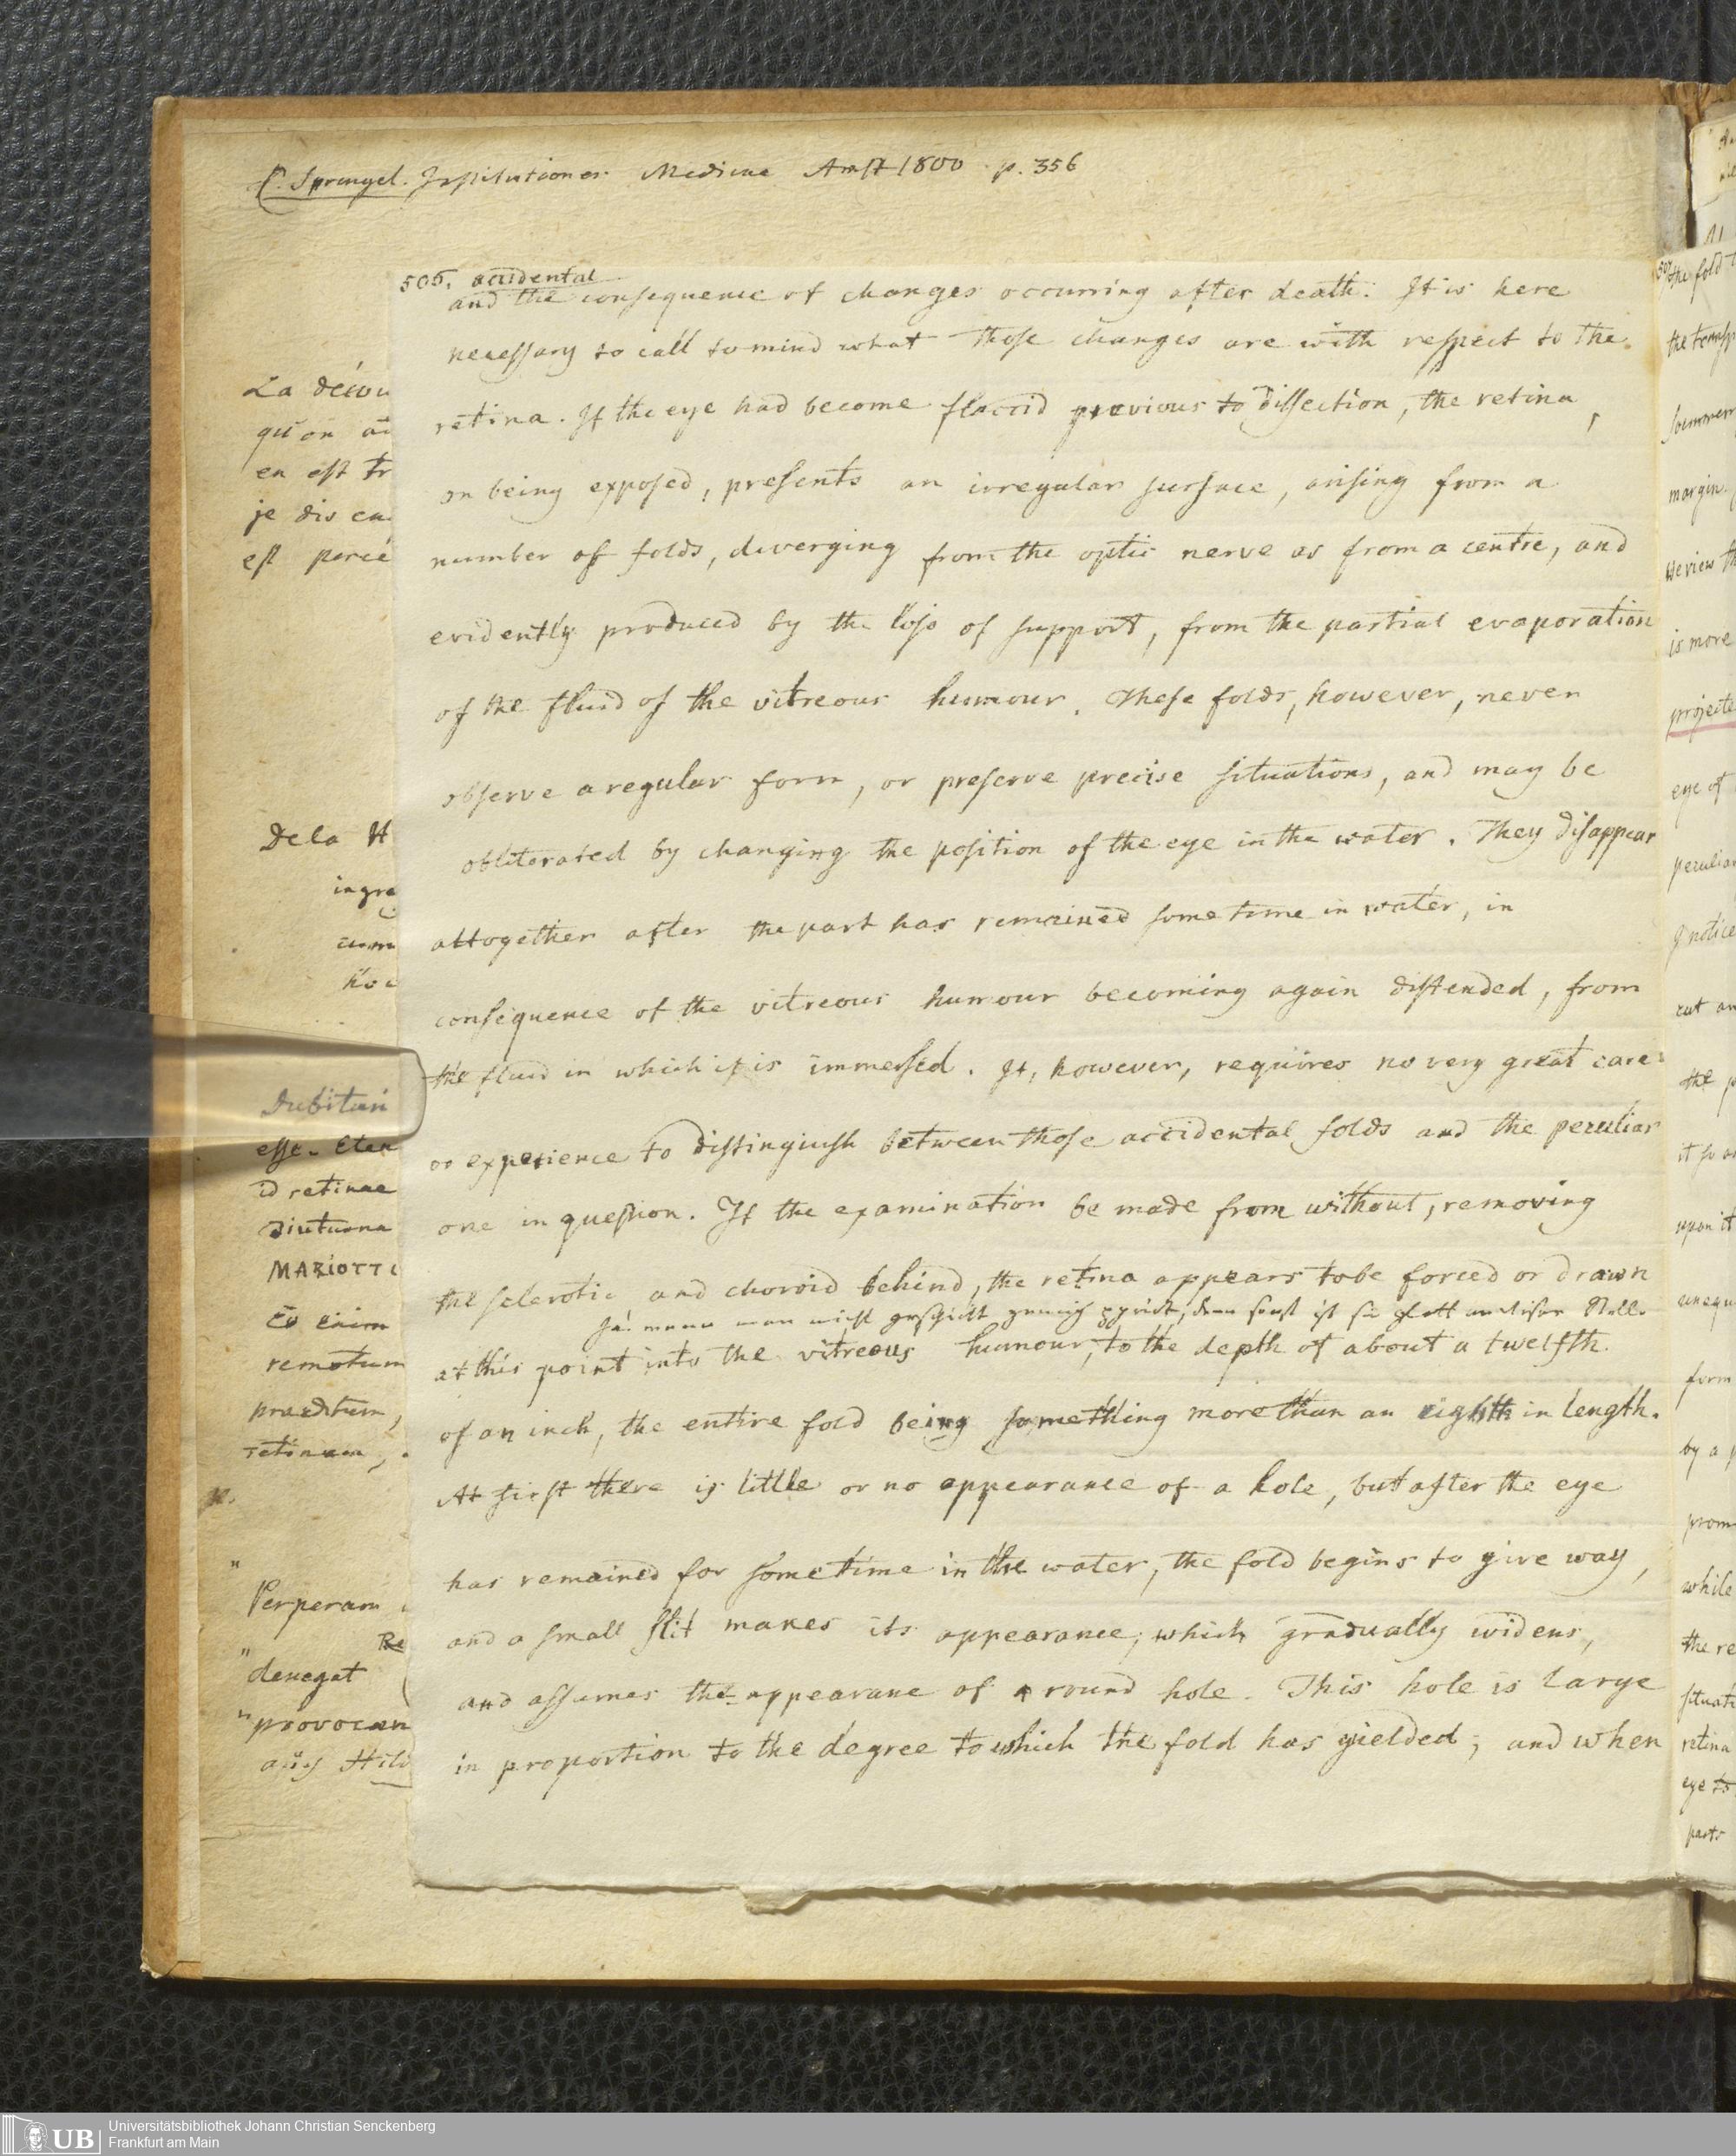 C. Sprengel. Institutiones Medicae Amst 1800 p. 356
505. accidental
and the consequence of changes occurring after death. It is here
necessary to call to mind what those changes are with respect to the
retina. If the eye had become flaccid previous to dissection, the retina,
on being exposed, presents an irregular surface, arising from a
number of folds, diverging from the optic nerve as from a centre, and
evidently produced by the loss of support, from the partial evaporation
of the fluid of the vitreous humour. These folds, however, never
observe a regular form, or preserve precise situations, and may be
obliterated by changing the position of the eye in the water. They disappear
altogether after the part has remained some time in water, in
consequence of the vitreous humour becoming again distended, from
the fluid in which it is immersed. It, however, requires no very great care
or experience to distinguish between those accidental folds and the peculiar
one in question. If the examination be made from without, removing
the sclerotic and choroid behind, the retina appears to be forced or drawn
Ja! wenn man nicht geschickt genug, denn sonst ist sie glatt an dieser Stelle
at this point into the vitreous humour, to the depth of about a twelfth
of an inch, the entire fold being something more than an eighth in length.
At first there is little or no appearance of a hole, but after the eye
has remained for some time in the water, the fold begins to give way,
and a small slit makes its appearance, which gradually widens,
and assumes the appearance of a round hole. This hole is large
in proportion to the degree to which the fold has yielded; and when
La décou
qu'on
en est tr
je dis
est percé
De la H
ingra
hoc
Dubitari
esse.
id retinae
diuturna
MARIOTTE
Eo enim
remotum
praeditum,
retinam,
"
Perperam
Re
" denegat
" provocan
507 the fold
the transp
Soemmerr
margin
we view th
is more
projecte
eye of
peculiar
notice
cut an
the p
it so as
upon it
unequ
form
by a p
prom
while
the re
situati
retina
eye to
parts
Universitätsbibliothek Johann Christian Senckenberg
Frankfurt am Main
UB